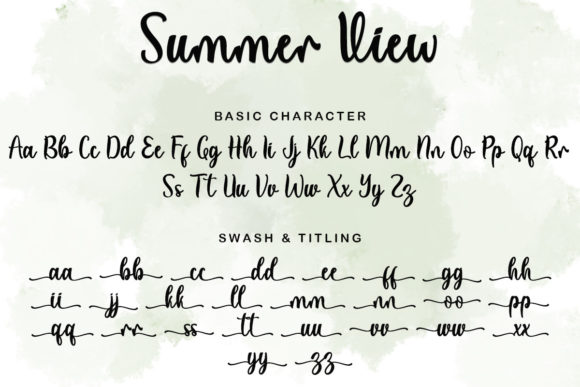 Summer View
BASIC CHARACTER
Aa Bb Cc Dd Ee Ff Gg Hh Ii Jj Kk Ll Mm Nn Oo Pp Qq Rr
Ss Tt Uu Vv Ww Xx Yy Zz
SWASH & TITLING
aa bb cc dd ee ff gg hh
ii jj kk ll mm nn oo pp
qq rr ss tt uu vv ww xx
yy zz